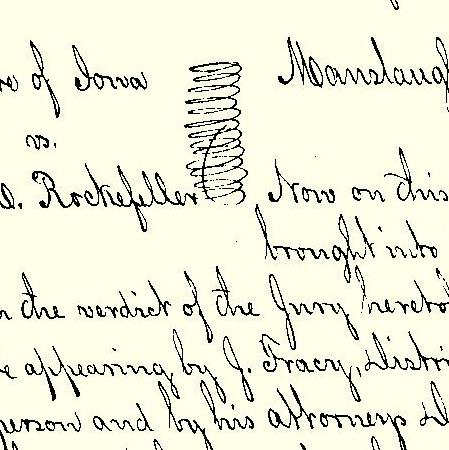 of Iowa Manslaug
vs.
D. Rockefeller Now on this
brought into
the verdict of the Jury hereto
appearing by J. Tracy, Distri
person and by his attorneys D